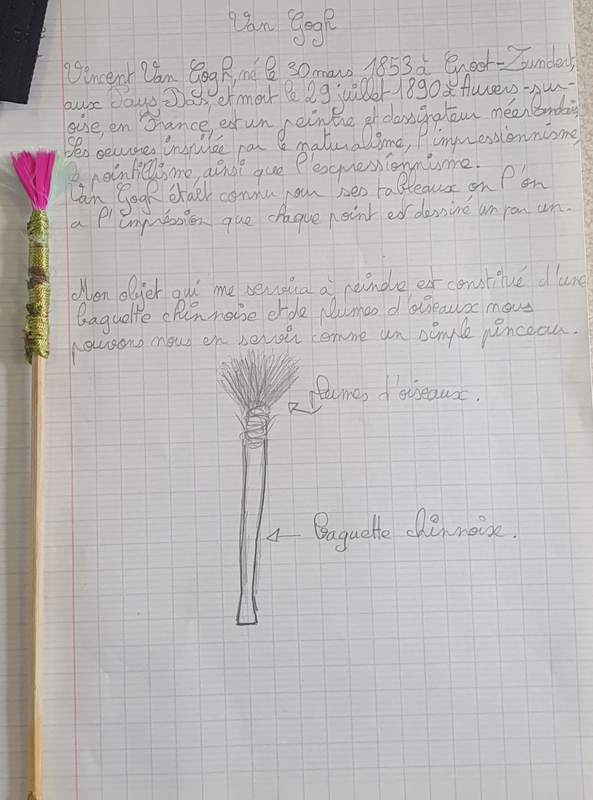 Van Gogh
Vincent Van Gogh, né le 30 mars 1853 à Groot-Zundert,
aux Pays-Bas, et mort le 29 juillet 1890 à Auvers-sur-
oise, en France est un peintre et dessinateur néerlandais
Ses oeuvres inspirée par le naturalisme, l'impressionnisme,
le pointillisme, ainsi que l'expressionnisme.
Van Gogh était connu pour ses tableaux où l'on
a l'impréssion que chaque point est dessiné un par un.
Mon objet qui me servira à peindre est constitué d'une
baguette chinnoise et de plumes d'oiseaux nous
pouvons nous en servir comme un simple pinceau.
plumes d'oiseaux.
baguette chinnoise.